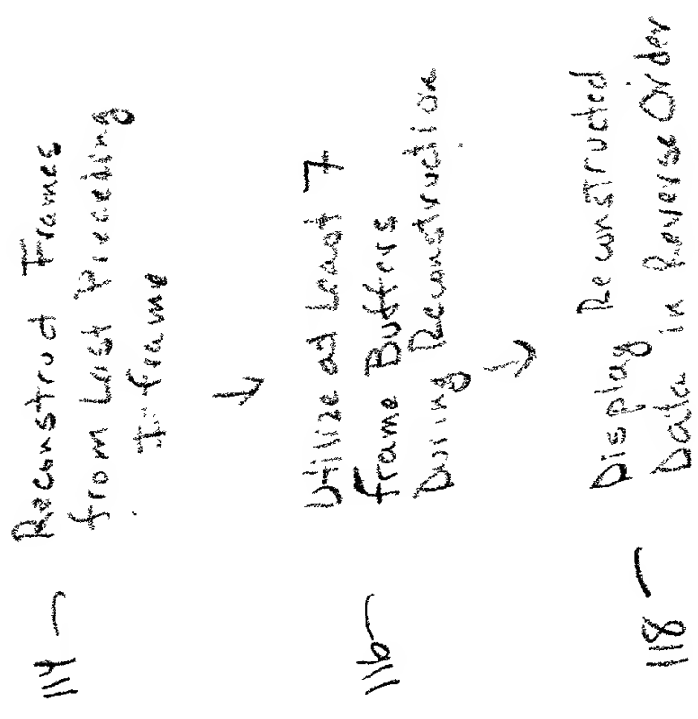 114 Reconstruct Frames
from Last Preceding
I-frame
↓
116 Utilize at Least 7
Frame Buffers
During Reconstruction
↓
118 Display Reconstructed
Data in Reverse Order